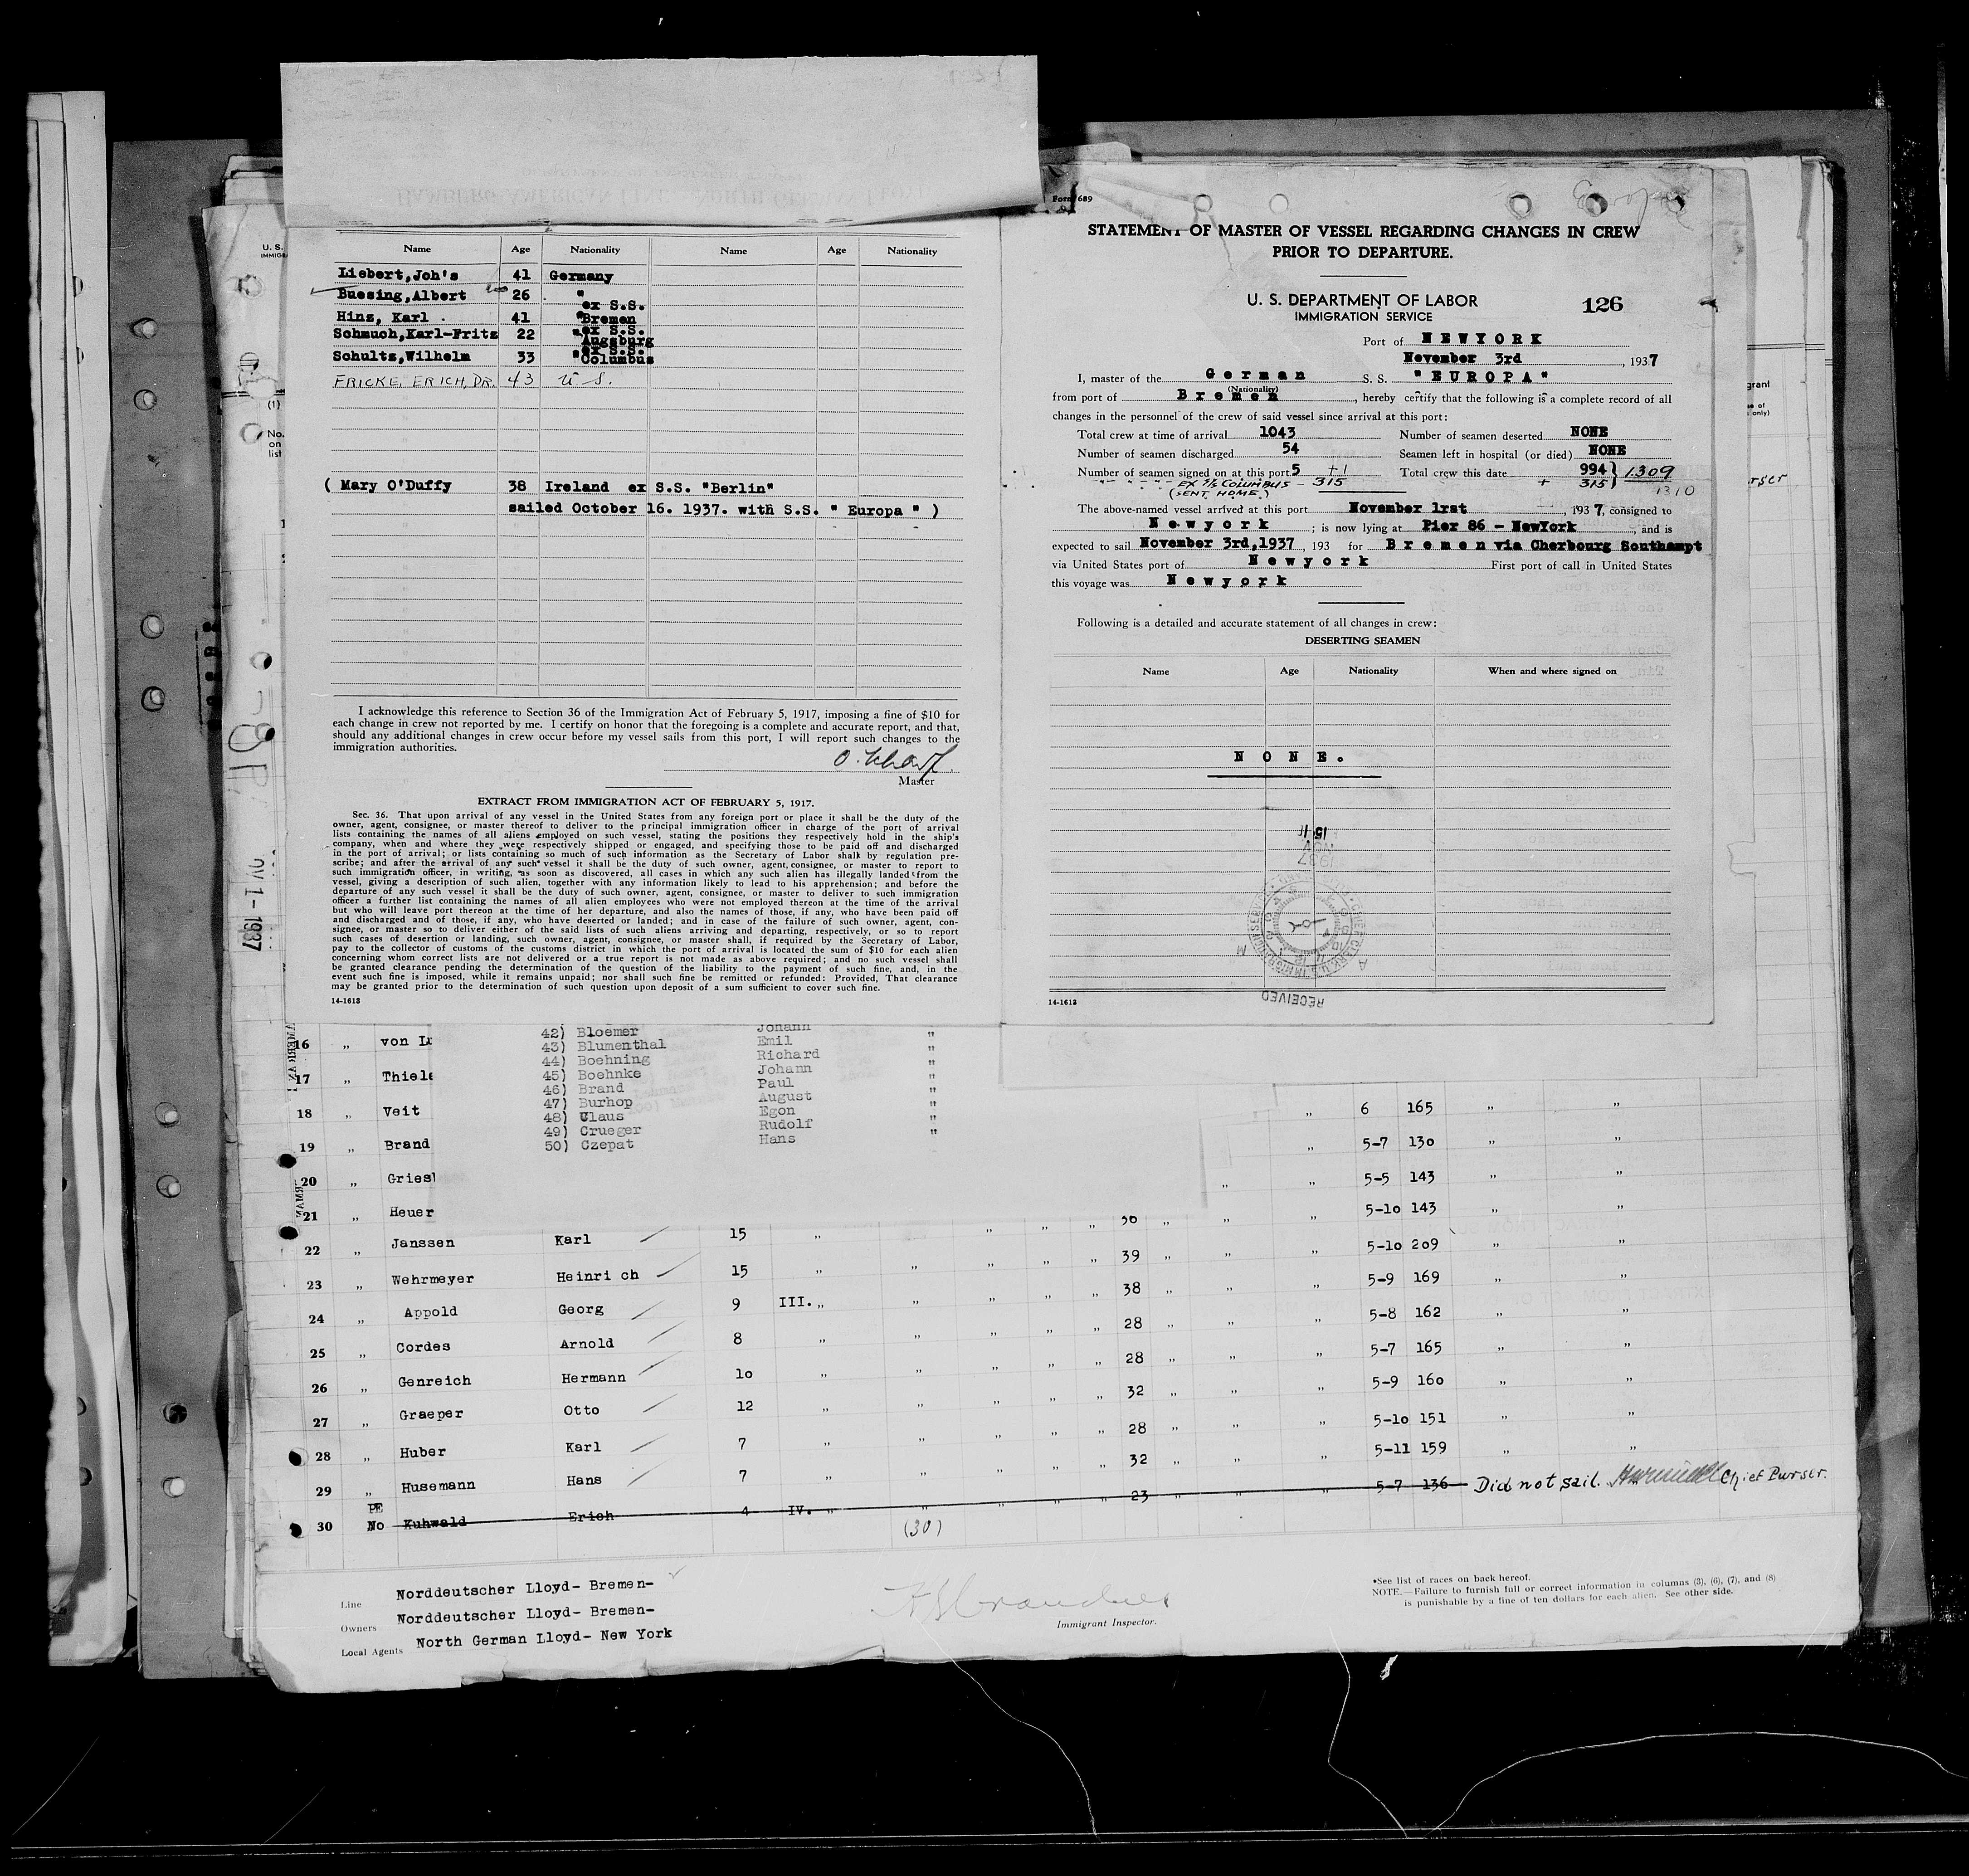 Name Age Nationality Name Age Nationality
Liebert,Joh's 41 Germany
Buesing,Albert 26 "
ex S.S.
Hinz, Karl 41 "Bremen
ex S.S.
Schmuch,Karl-Fritz 22 "Augsburg
ex S.S.
Schultz,Wilhelm 33 "Columbus
FRICKE, ERICH, DR. 43 U S.
( Mary O'Duffy 38 Ireland ex S.S. "Berlin"
sailed October 16. 1937. with S.S. " Europa " )
I acknowledge this reference to Section 36 of the Immigration Act of February 5, 1917, imposing a fine of $10 for
each change in crew not reported by me. I certify on honor that the foregoing is a complete and accurate report, and that,
should any additional changes in crew occur before my vessel sails from this port, I will report such changes to the
immigration authorities.
Master
EXTRACT FROM IMMIGRATION ACT OF FEBRUARY 5, 1917.
Sec. 36. That upon arrival of any vessel in the United States from any foreign port or place it shall be the duty of the
owner, agent, consignee, or master thereof to deliver to the principal immigration officer in charge of the port of arrival
lists containing the names of all aliens employed on such vessel, stating the positions they respectively hold in the ship's
company, when and where they were respectively shipped or engaged, and specifying those to be paid off and discharged
in the port of arrival; or lists containing so much of such information as the Secretary of Labor shall by regulation pre-
scribe; and after the arrival of any such vessel it shall be the duty of such owner, agent, consignee, or master to report to
such immigration officer, in writing, as soon as discovered, all cases in which any such alien has illegally landed from the
vessel, giving a description of such alien, together with any information likely to lead to his apprehension; and before the
departure of any such vessel it shall be the duty of such owner, agent, consignee, or master to deliver to such immigration
officer a further list containing the names of all alien employees who were not employed thereon at the time of the arrival
but who will leave port thereon at the time of her departure, and also the names of those, if any, who have been paid off
and discharged and of those, if any, who have deserted or landed; and in case of the failure of such owner, agent, con-
signee, or master so to deliver either of the said lists of such aliens arriving and departing, respectively, or so to report
such cases of desertion or landing, such owner, agent, consignee, or master shall, if required by the Secretary of Labor,
pay to the collector of customs of the customs district in which the port of arrival is located the sum of $10 for each alien
concerning whom correct lists are not delivered or a true report is not made as above required; and no such vessel shall
be granted clearance pending the determination of the question of the liability to the payment of such fine, and, in the
event such fine is imposed, while it remains unpaid; nor shall such fine be remitted or refunded: Provided, That clearance
may be granted prior to the determination of such question upon deposit of a sum sufficient to cover such fine.
14-1613
Form 689
Europa
STATEMENT OF MASTER OF VESSEL REGARDING CHANGES IN CREW
PRIOR TO DEPARTURE.
U. S. DEPARTMENT OF LABOR
IMMIGRATION SERVICE
126
Port of NEWYORK
November 3rd, 1937
I, master of the German S. S. "EUROPA"
(Nationality)
from port of Bremen, hereby certify that the following is a complete record of all
changes in the personnel of the crew of said vessel since arrival at this port:
Total crew at time of arrival 1043 Number of seamen deserted NONE
Number of seamen discharged 54 Seamen left in hospital (or died) NONE
Number of seamen signed on at this port 5 +1 Total crew this date 994 } 1309
" " " " EX S/S COLUMBUS - 315 + 315 } 1310
(SENT HOME)
The above-named vessel arrived at this port November 1rst, 1937, consigned to
Newyork; is now lying at Pier 86 - NewYork, and is
expected to sail November 3rd,1937, 193 for Bremen via Cherbourg Southampt
via United States port of Newyork First port of call in United States
this voyage was Newyork
Following is a detailed and accurate statement of all changes in crew:
DESERTING SEAMEN
Name Age Nationality When and where signed on
NONE.
RECEIVED
14-1613
NOV 1 - 1937
42) Bloemer Johann "
43) Blumenthal Emil "
44) Boehning Richard "
45) Boehnke Johann "
46) Brand Paul "
47) Burhop August "
48) Claus Egon "
49) Crueger Rudolf "
50) Czepat Hans
16 " von
17 " Thiele
18 " Veit " 6 165 " "
19 " Brand " 5-7 130 " "
20 " " " 5-5 143 " "
21 " Heuer 36 " " " 5-10 143 " "
22 " Janssen Karl 15 " " " " 39 " " " 5-10 209 " "
23 " Wehrmeyer Heinrich 15 " " " " " 38 " " " 5-9 169 " "
24 " Appold Georg 9 III. " " " " " 28 " " " 5-8 162 " "
25 " Cordes Arnold 8 " " " " " 28 " " " 5-7 165 " "
26 " Genreich Hermann 10 " " " " " 32 " " " 5-9 160 " "
27 " Graeper Otto 12 " " " " " 28 " " " 5-10 151 " "
28 " Huber Karl 7 " " " " " 32 " " " 5-11 159 " "
29 " Husemann Hans 7 " " " " "
30 PE No Kuhwald Erich 4 IV. " " " " " 23 " " " 5-7 136 Did not sail. Chief Purser.
(30)
Line Norddeutscher Lloyd- Bremen-
Owners Norddeutscher Lloyd- Bremen-
Local Agents North German Lloyd- New York
Immigrant Inspector.
*See list of races on back hereof.
NOTE.—Failure to furnish full or correct information in columns (3), (6), (7), and (8)
is punishable by a fine of ten dollars for each alien. See other side.